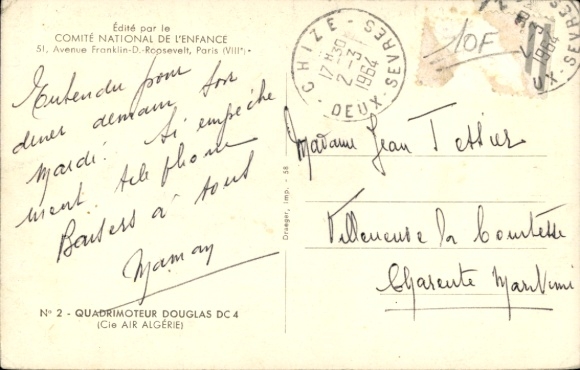 Édité par le
COMITÉ NATIONAL DE L'ENFANCE
51, Avenue Franklin-D.-Roosevelt, Paris (VIIIe)
Entendu pour ton
diner demain soir
mardi. Si empêche
ment telephone
Baisers à tous
Maman
N° 2 - QUADRIMOTEUR DOUGLAS DC 4
(Cie AIR ALGÉRIE)
Draeger, Imp. - 58
CHIZE - DEUX-SEVRES
17H30
2-3
1964
10F
1964
UX-SEVRES
Madame Jean Tessier
Villeneuve la Comtesse
Charente Maritime